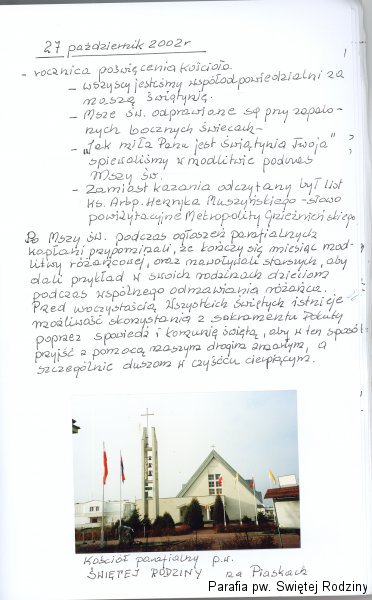 27 październik 2002r
- rocznica poświęcenia kościoła.
- wszyscy jesteśmy współodpowiedzialni za
naszą świątynię.
- Msze św. odprawiane są przy zapalo-
nych bocznych świecach-
- "Jak miła Panu jest świątynia Twoja"
śpiewaliśmy w modlitwie podczas
Mszy św.
- Zamiast kazania odczytany był list
ks. Arbp. Henryka Muszyńskiego - słowo
powizytacyjne Metropolity Gnieźnieńskiego
Po Mszy św. podczas ogłoszeń parafialnych
kapłani przypominali, że kończy się miesiąc mod-
litwy różańcowej, oraz nawoływali starszych, aby
dali przykład w swoich rodzinach dzieciom
podczas wspólnego odmawiania różańca.
Przed uroczystością Wszystkich Świętych istnieje
możliwość skorzystania z sakramentu Pokuty
poprzez spowiedź i komunię świętą, aby w ten sposób
przyjść z pomocą naszym drogim zmarłym, a
szczególnie duszom w czyśćcu cierpiącym.
Kościół parafialny p.w.
ŚWIĘTEJ RODZINY na Piaskach
Parafia pw. Świętej Rodziny